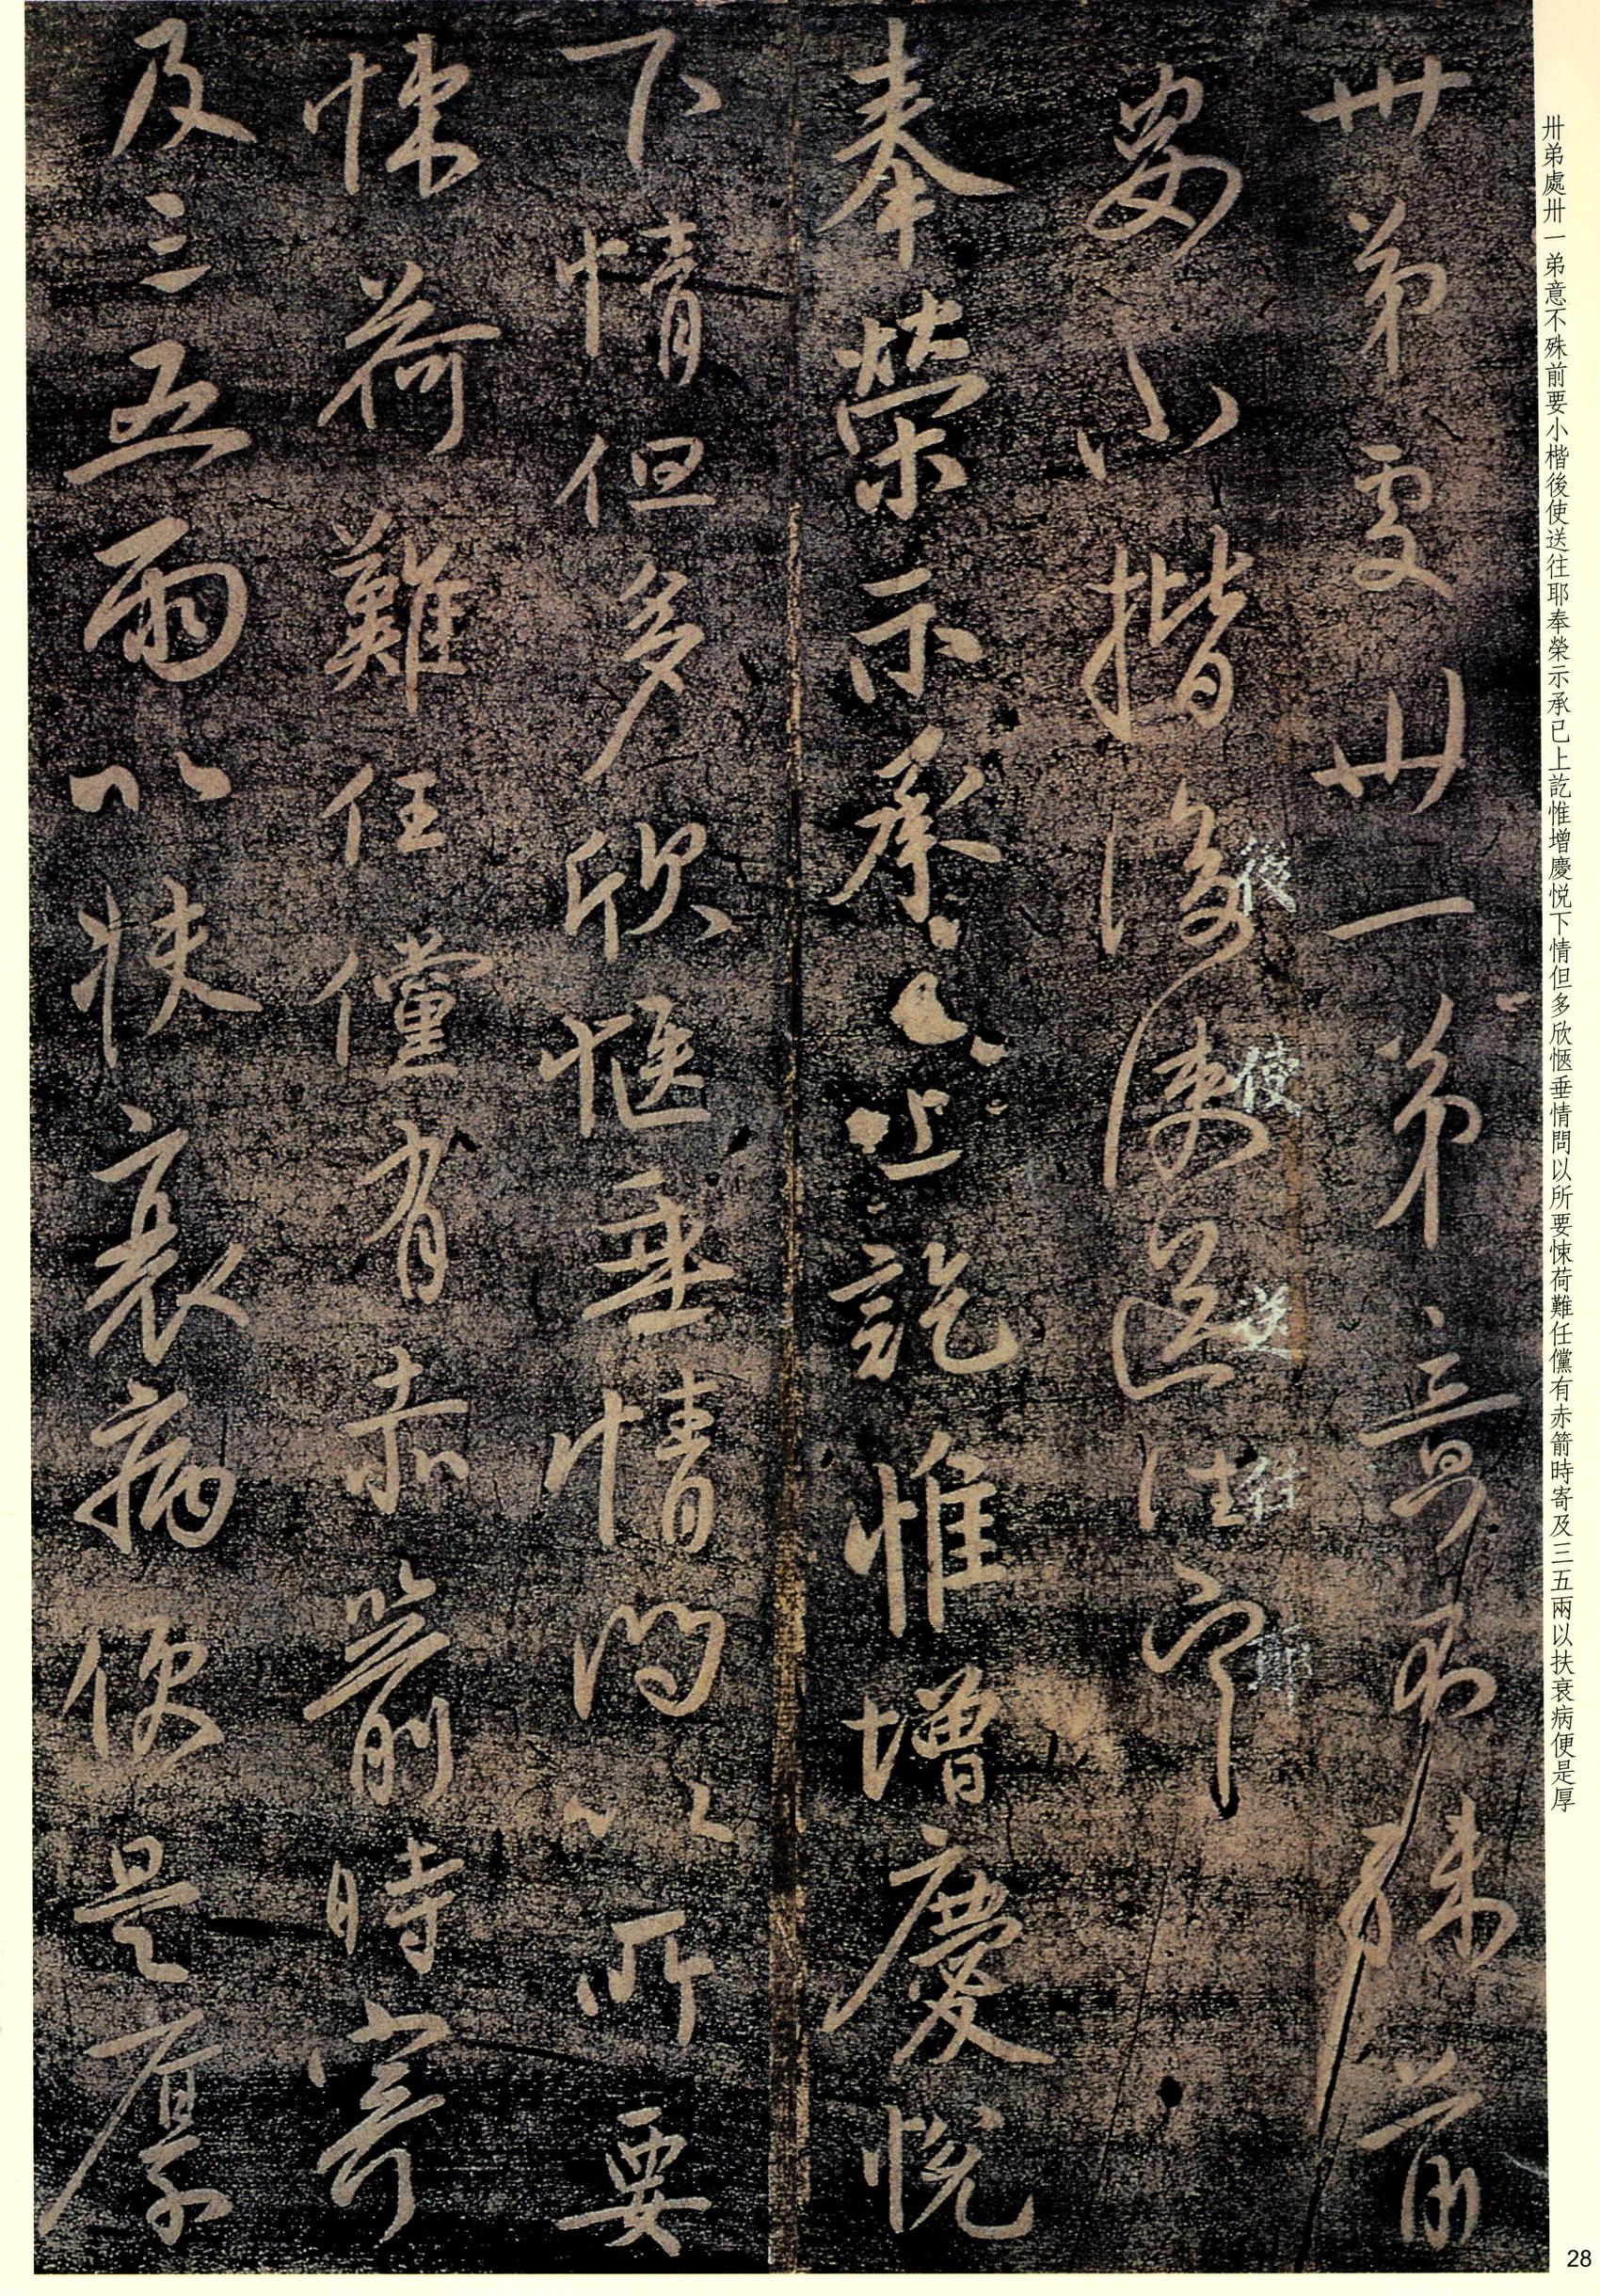 卅弟處卅一弟意不殊前
要小楷後使送往耶
後使送行耶
奉榮示承已上訖惟增慶悅
下情但多欣愜垂情問以所要
悚荷難任儻有赤箭時寄
及三五兩以扶衰病便是厚
卅弟處卅一弟意不殊前要小楷後使送往耶奉榮示承已上訖惟增慶悅下情但多欣愜垂情問以所要悚荷難任儻有赤箭時寄及三五兩以扶衰病便是厚
28